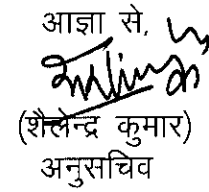 आज्ञा से,
(शैलेन्द्र कुमार)
अनुसचिव